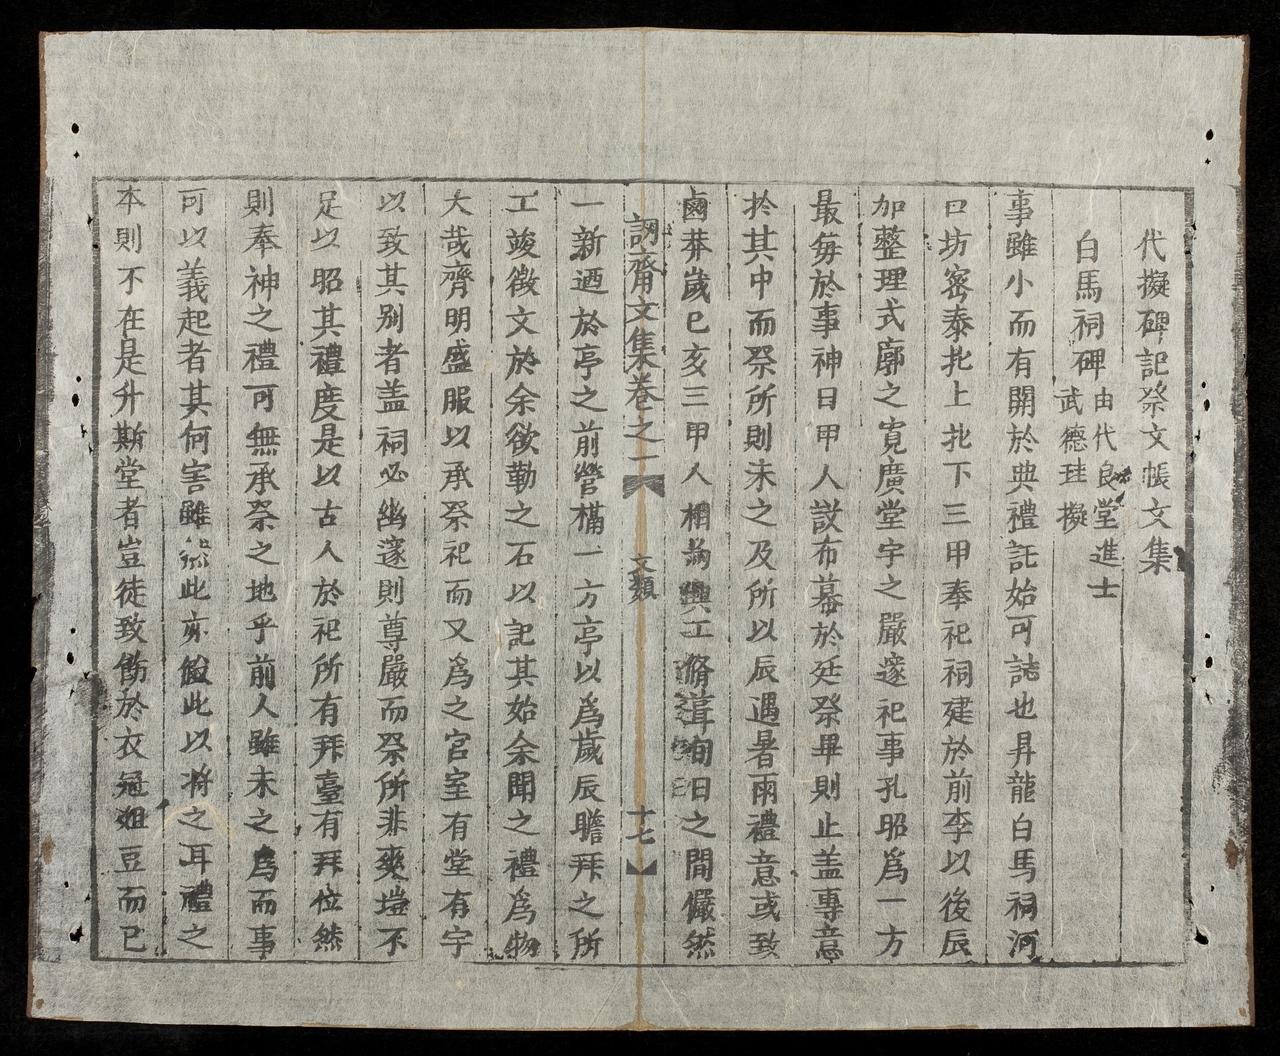 代擬碑記祭文帳文集
白馬祠碑 由代良堂進士
武德珪擬
事雖小而有關於典禮託始可誌也昇龍白馬祠河
口坊密泰北上北下三甲奉祀祠建於前李以後辰
加整理式廓之寬廣堂宇之嚴邃祀事孔昭爲一方
最每於事神日甲人設布幕於廷祭畢則止盖專意
於其中而祭所則未之及所以辰遇暑雨禮意或致
鹵莽歲已亥三甲人相為興工脩葺旬日之間儼然
訒齋文集卷之一 文類 十七
一新迺於亭之前營構一方亭以爲歲辰瞻拜之所
工竣徵文於余欲勒之石以記其始余聞之禮爲物
大哉齊明盛服以承祭祀而又爲之宮室有堂有宇
以致其别者盖祠必幽邃則尊嚴而祭所非爽塏不
足以昭其禮度是以古人於祀所有拜臺有拜位然
則奉神之禮可無承祭之地乎前人雖未之爲而事
可以義起者其何害雖然此亦假此以將之耳禮之
本則不在是升斯堂者豈徒致飾於衣冠俎豆而已